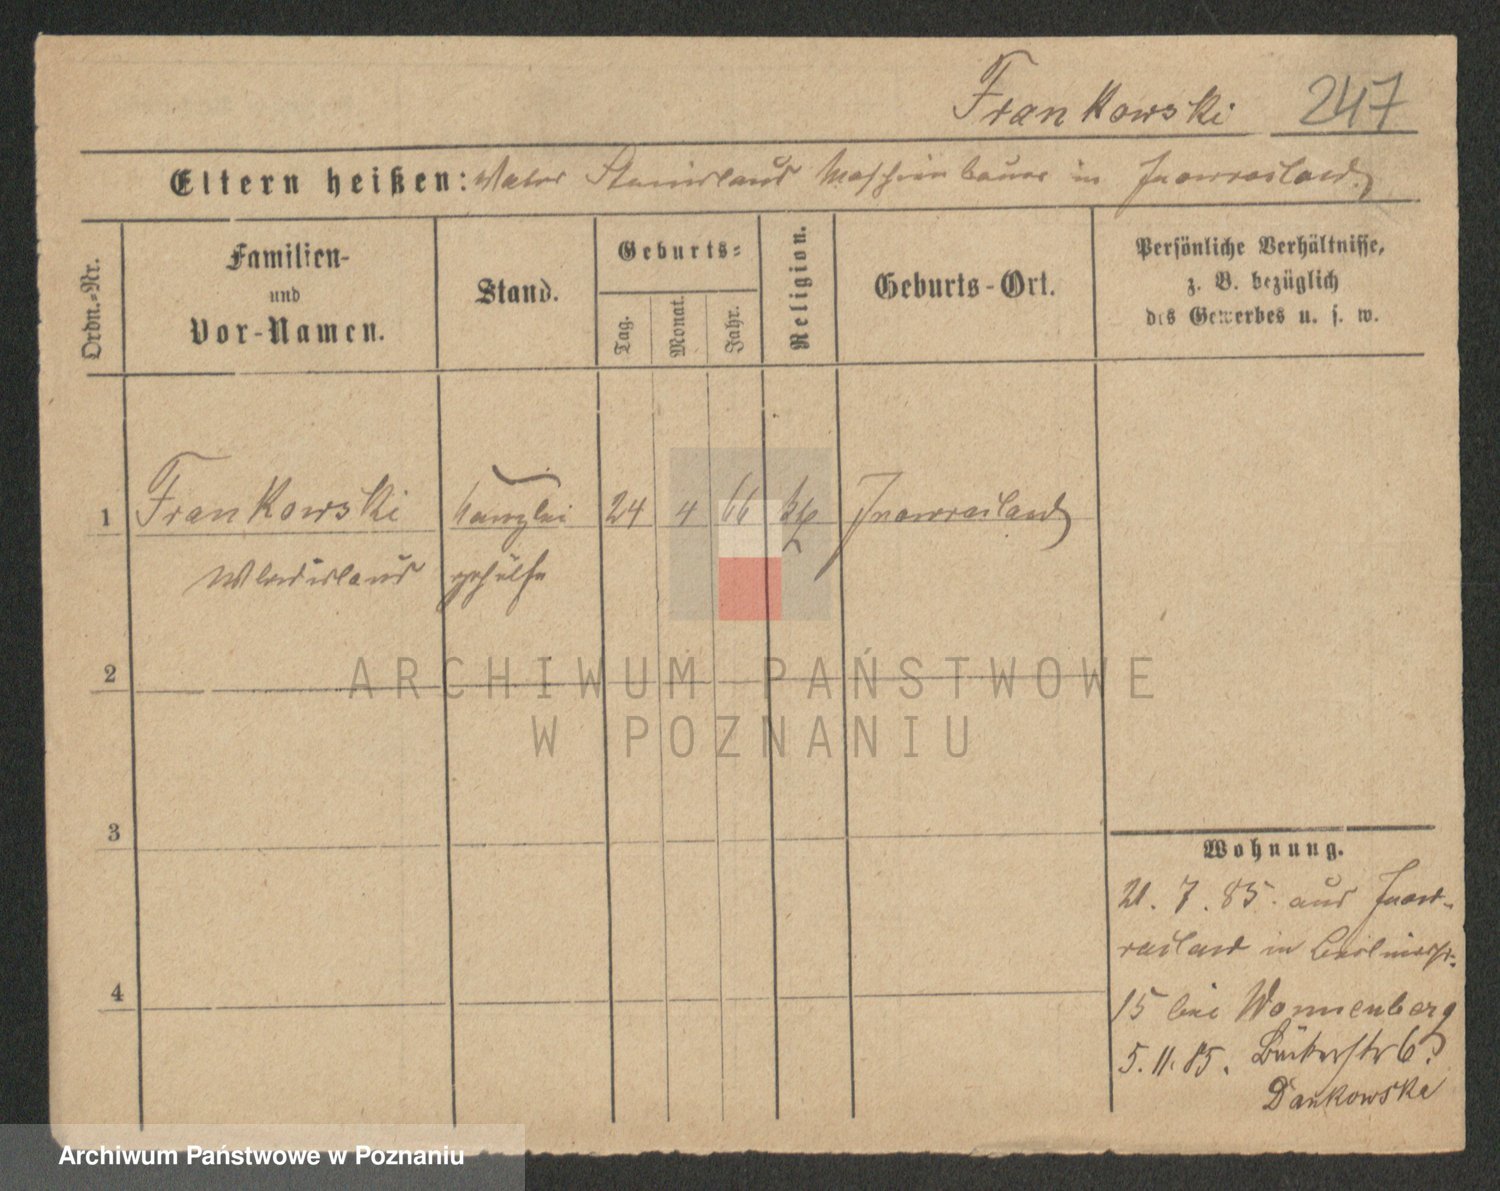 Frankowski 247
Eltern heißen: Vater Stanislaus Maschinenbauer in Inowrazlaw
Ordn.-Nr.
Familien-
und
Vor-Namen.
Stand.
Geburts-
Tag.
Monat.
Jahr.
Religion.
Geburts-Ort.
Persönliche Verhältnisse,
z. B. bezüglich
des Gewerbes u. s. w.
1 Frankowski Kanzlei 24 4 66 kth Inowrazlaw
Wladislaus gehülfe
2
3
4
Wohnung.
21. 7. 85. aus Inow-
razlaw in
15 bei Wonnenberg
5. 11. 85. Bäckerstr 6.
Dankowska
ARCHIWUM PAŃSTWOWE
W POZNANIU
Archiwum Państwowe w Poznaniu